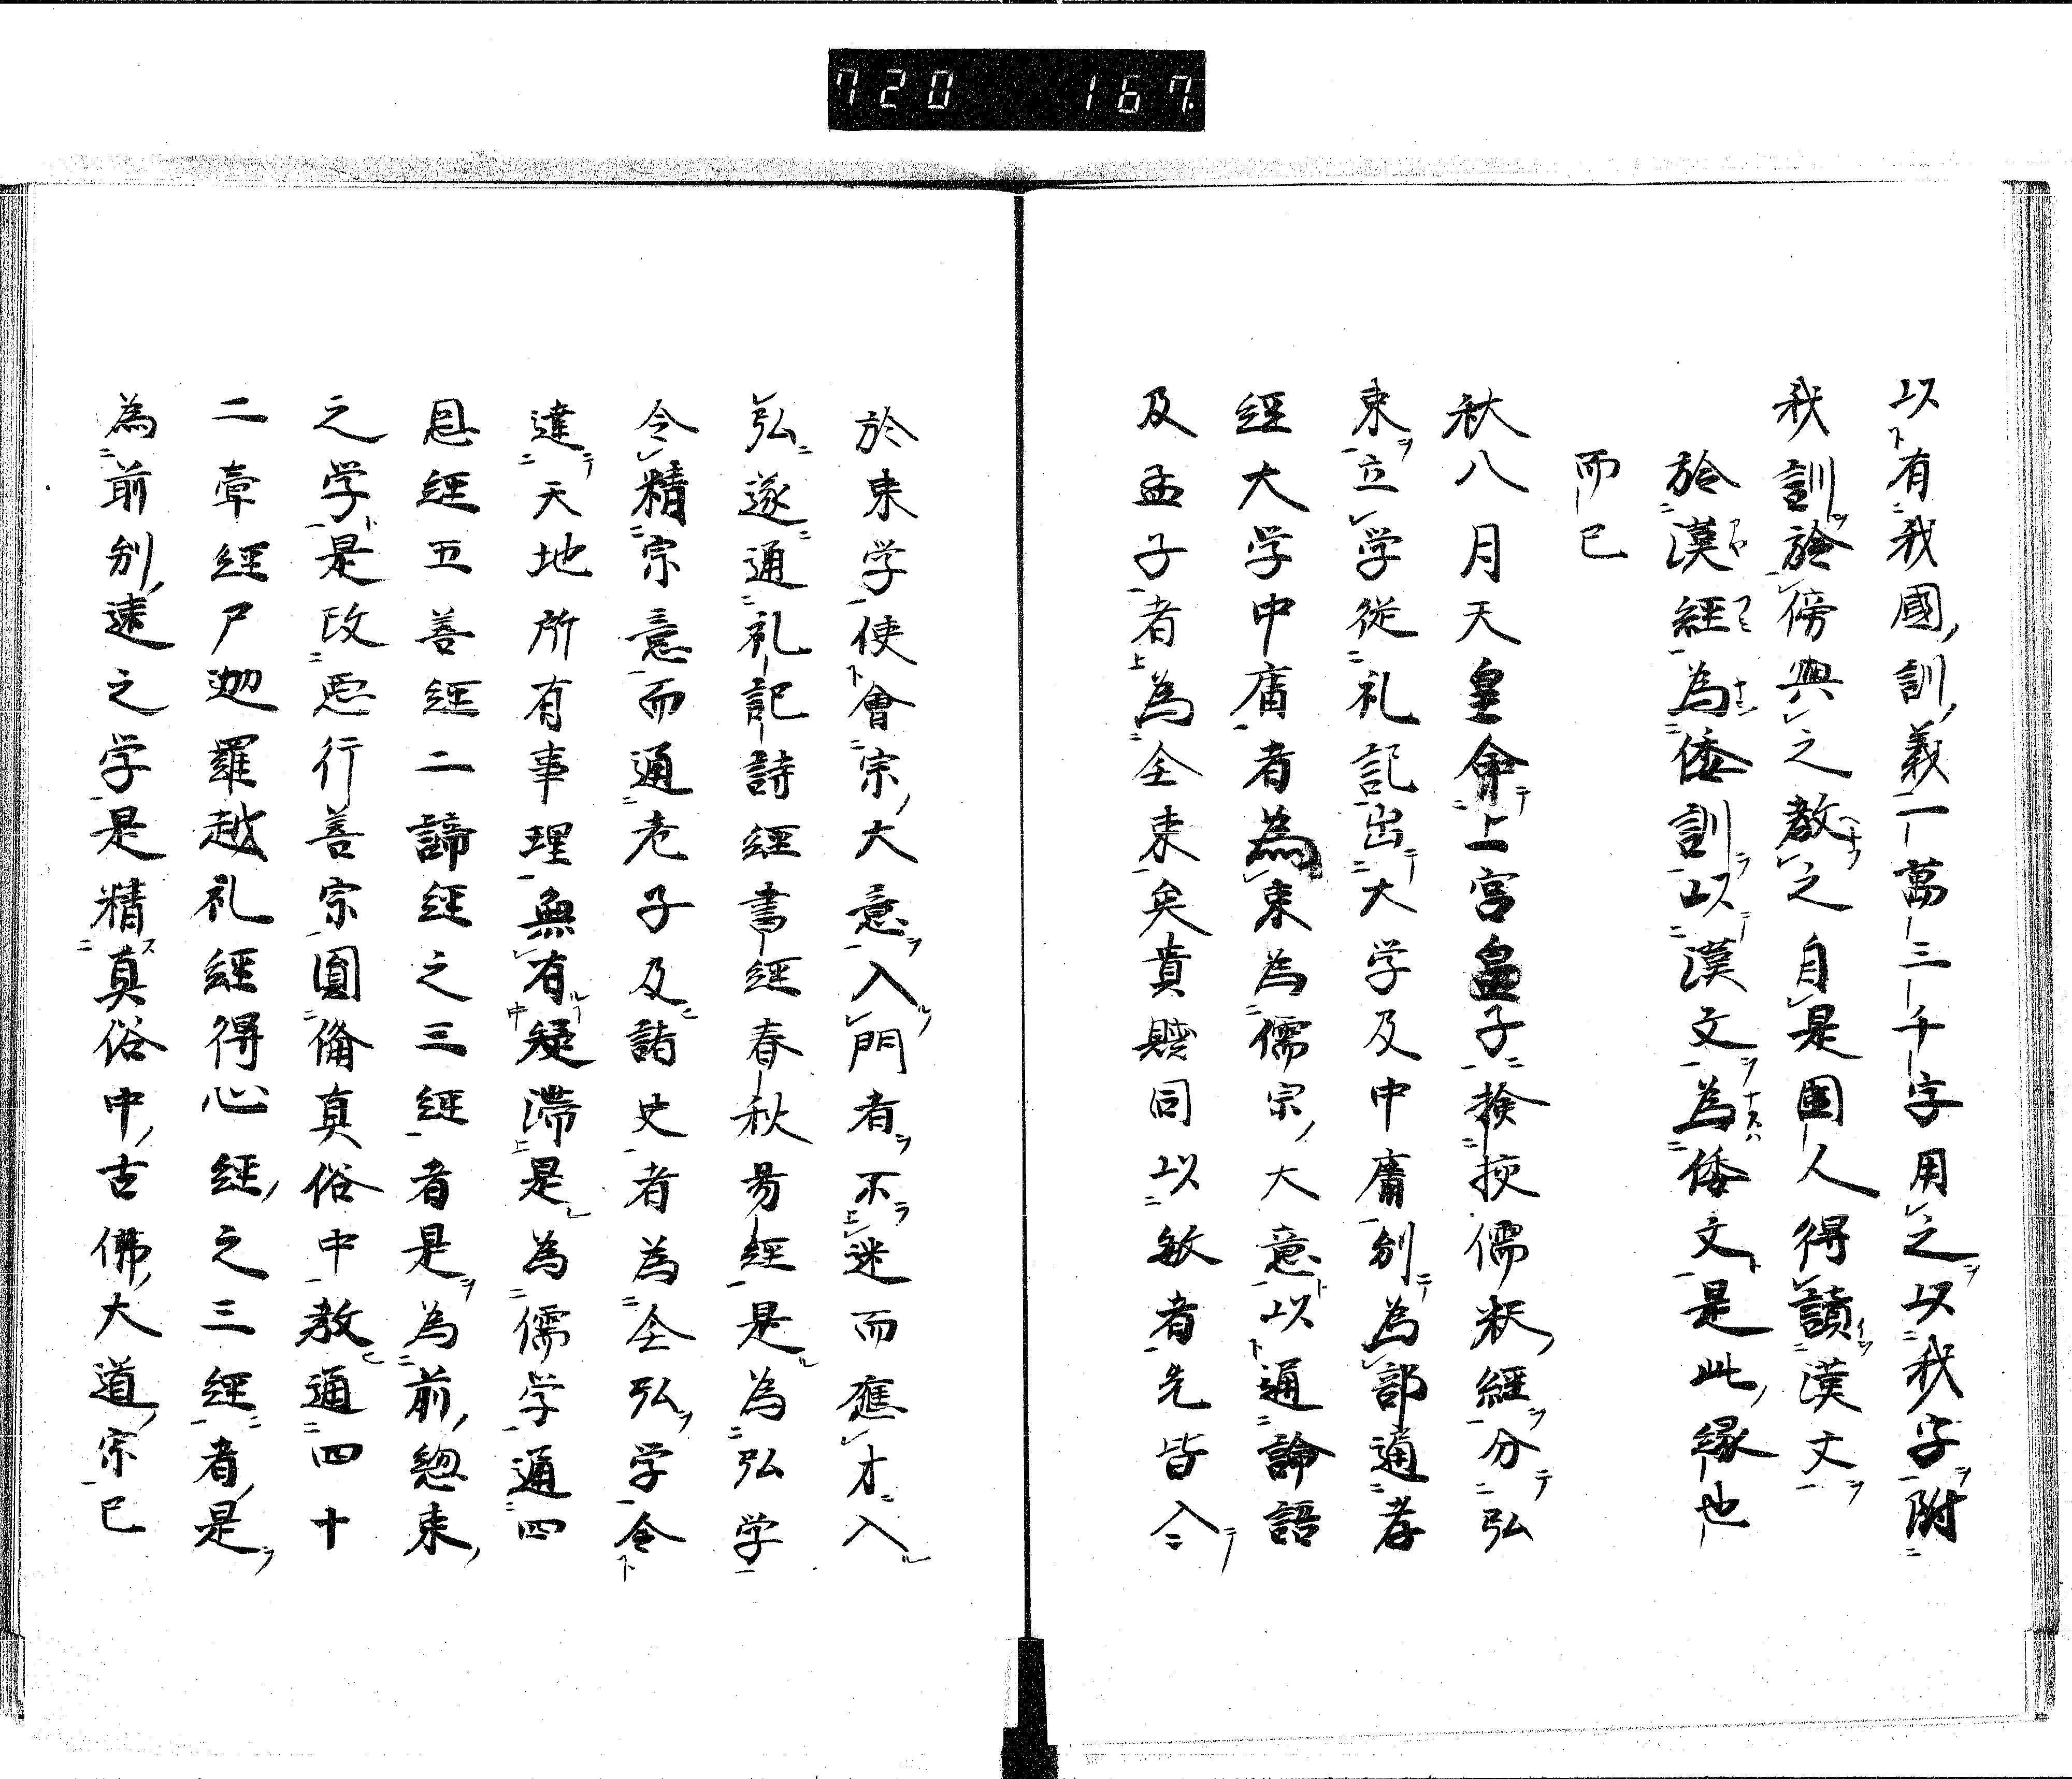 720 167.
以有我國訓義一萬三千字用之以我字附
我訓於傍典之教之自是國人得讀漢文
於漢經為倭訓以漢文為倭文是此緣也
而已
秋八月天皇命上宮皇子撿挍儒釈經分弘
束立学從礼記出大学及中庸別為部通孝
經大学中庸者為束為儒宗大意以通論語
及孟子者為全束矣貴賤同以敏者先皆入
於束学使會宗大意入門者不迷而應才入
弘遂通礼記詩經書經春秋易經是為弘学
令精宗意而通老子及諸史者為全弘学令
達天地所有事理無有疑滞是為儒学通四
恩經五善經二諦經之三經者是為前總束
之学是改悪行善宗圓俻真俗中教通四十
二章經尸迦羅越礼經得心經之三經者是
為前別速之学是精真俗中古佛大道宗已